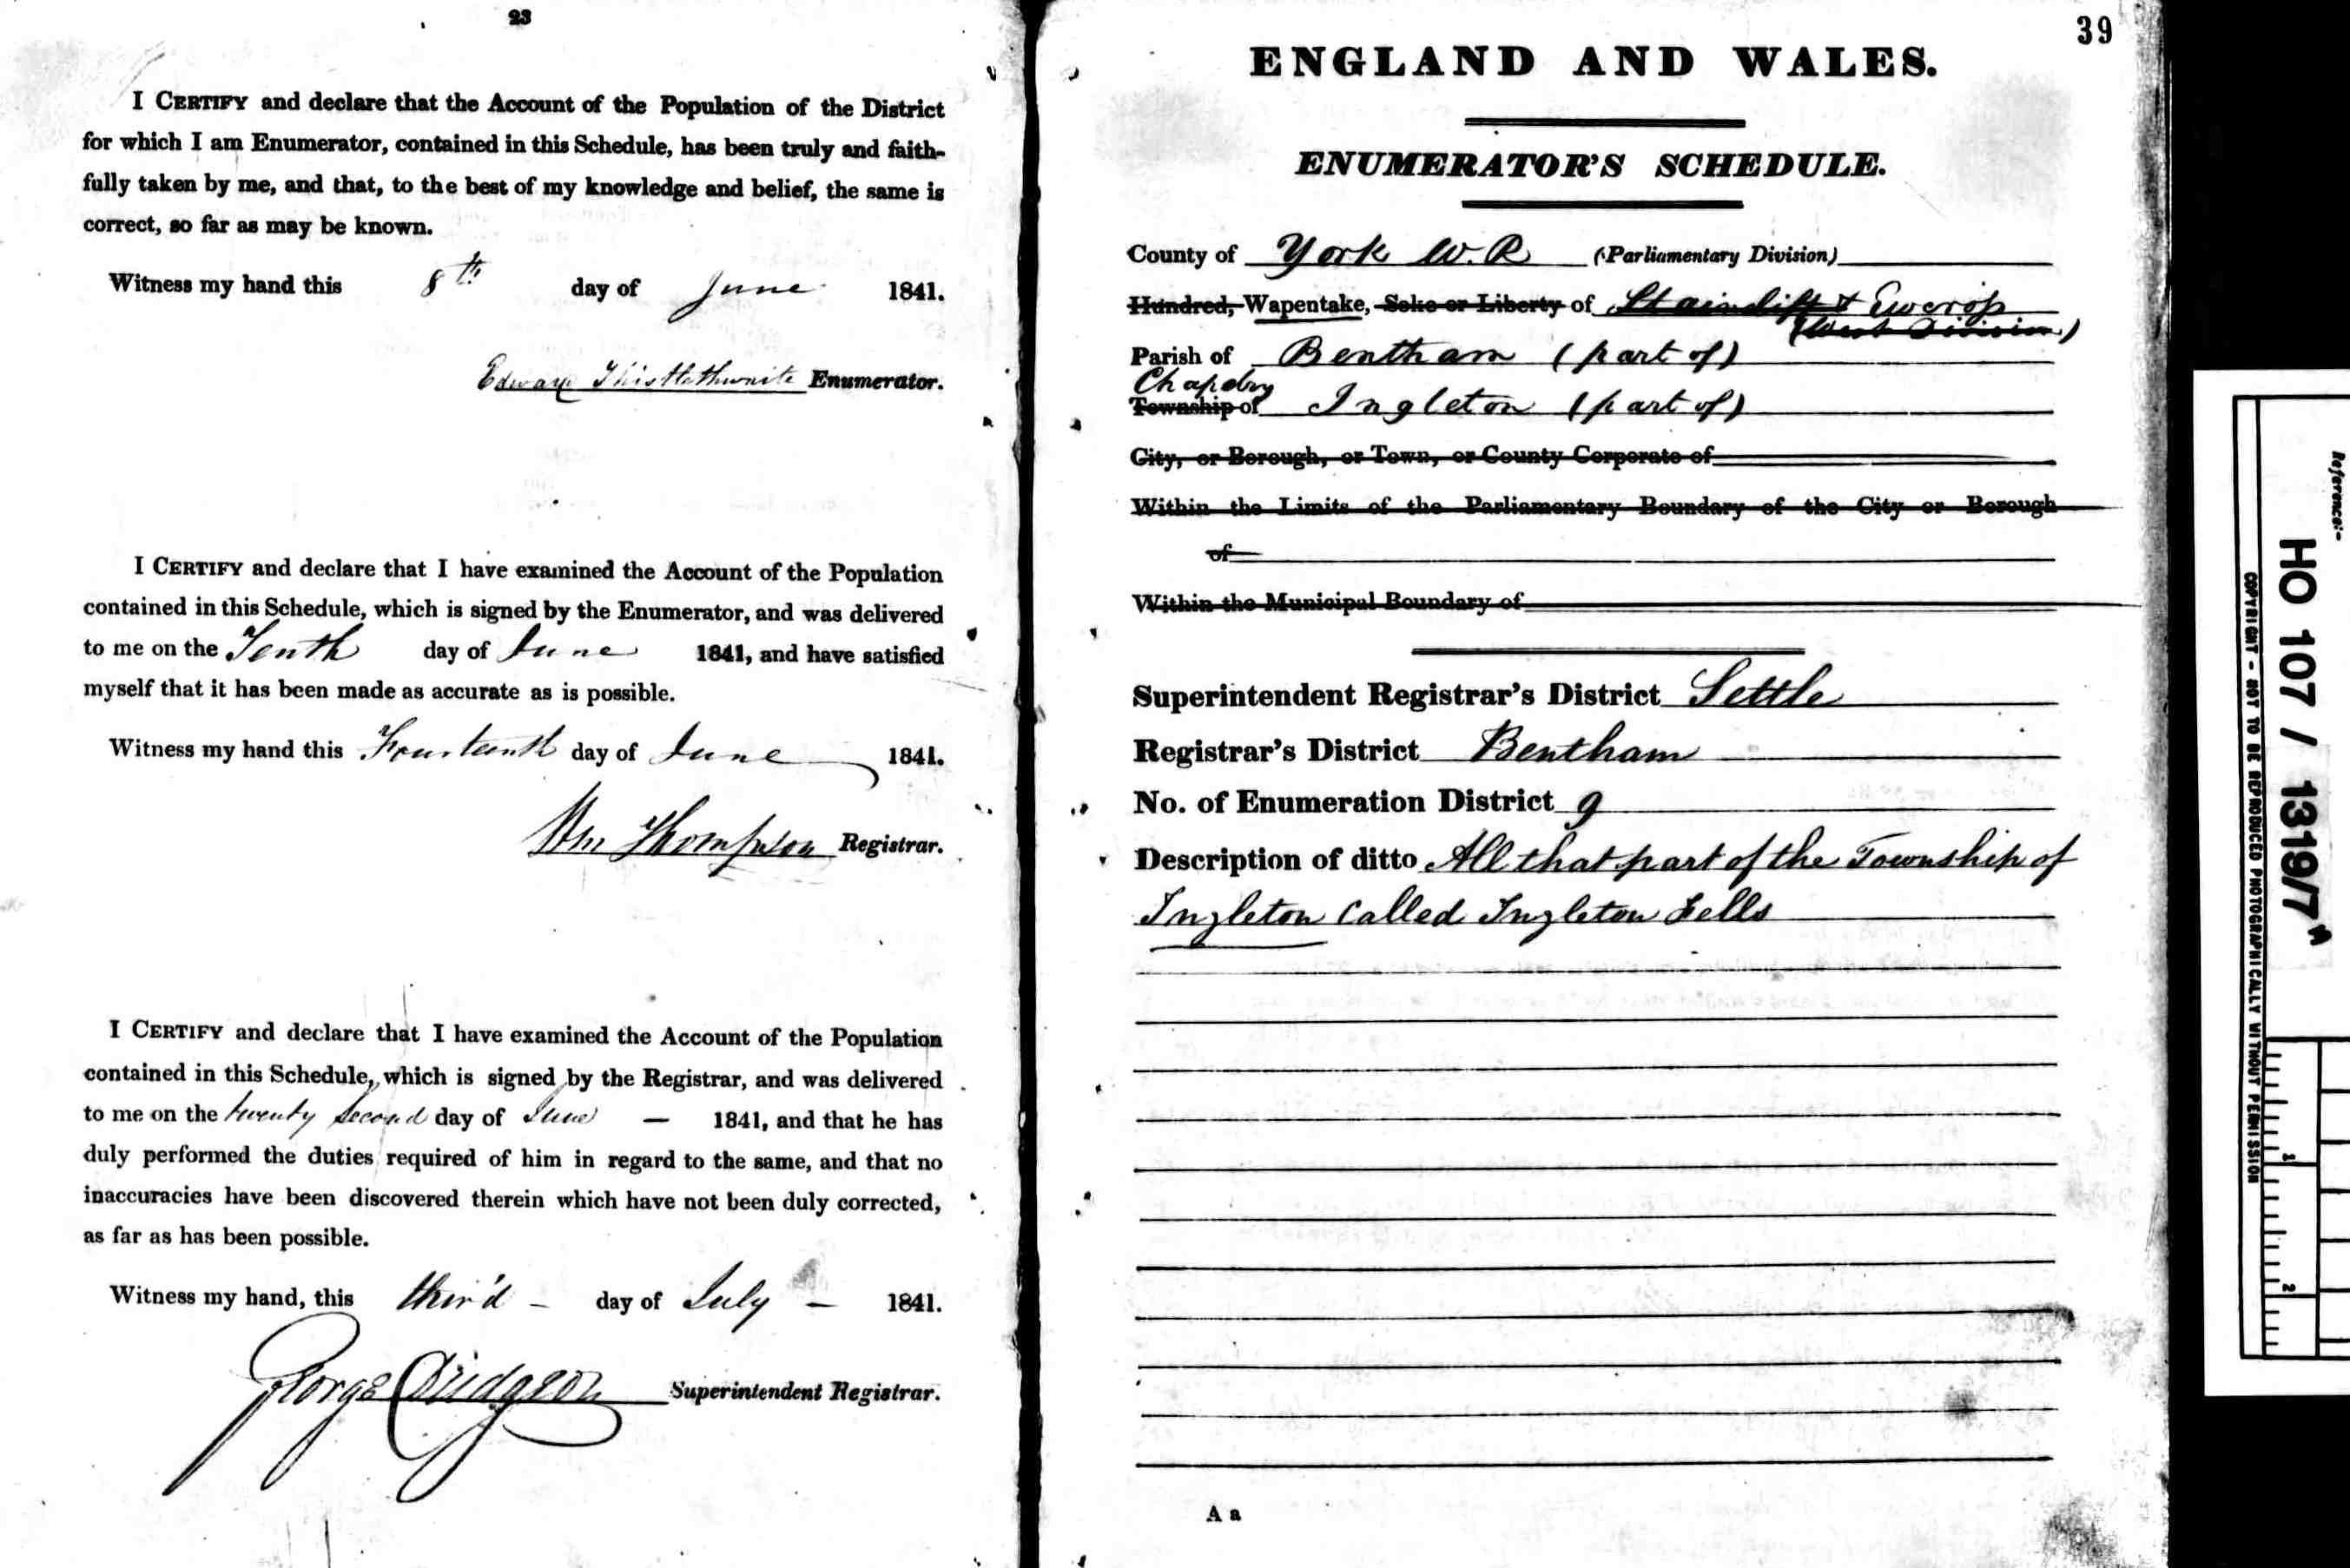 23
I CERTIFY and declare that the Account of the Population of the District
for which I am Enumerator, contained in this Schedule, has been truly and faith-
fully taken by me, and that, to the best of my knowledge and belief, the same is
correct, so far as may be known.
Witness my hand this 8th day of June 1841.
Thistlethwaite Enumerator.
I CERTIFY and declare that I have examined the Account of the Population
contained in this Schedule, which is signed by the Enumerator, and was delivered
to me on the Tenth day of June 1841, and have satisfied
myself that it has been made as accurate as is possible.
Witness my hand this Fourteenth day of June 1841.
Wm Thompson Registrar.
I CERTIFY and declare that I have examined the Account of the Population
contained in this Schedule, which is signed by the Registrar, and was delivered
to me on the twenty second day of June — 1841, and that he has
duly performed the duties required of him in regard to the same, and that no
inaccuracies have been discovered therein which have not been duly corrected,
as far as has been possible.
Witness my hand, this third - day of July - 1841.
George Superintendent Registrar.
39
ENGLAND AND WALES.
ENUMERATOR'S SCHEDULE.
County of York W.R (Parliamentary Division)
Hundred, Wapentake, Soke or Liberty of Staincliff & Ewcross
(West Division)
Parish of Bentham (part of)
Chapelry
Township of Ingleton (part of)
City, or Borough, or Town, or County Corporate of
Within the Limits of the Parliamentary Boundary of the City or Borough
of
Within the Municipal Boundary of
Superintendent Registrar's District Settle
Registrar's District Bentham
No. of Enumeration District 9
Description of ditto All that part of the Township of
Ingleton Called Ingleton Fells
A a
Reference:-
HO 107 / 1319/7
COPYRIGHT - NOT TO BE REPRODUCED PHOTOGRAPHICALLY WITHOUT PERMISSION
1
2